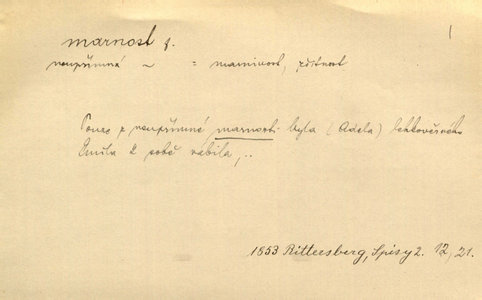 marnost f.
1
neupřímná ~ = marnivost, zištnost
Pouze z neupřímné marnosti byla (Adéla) lehkověrného
Emila k sobě vábila, ..
1853 Rittersberg, Spisy 2. 12, 21.